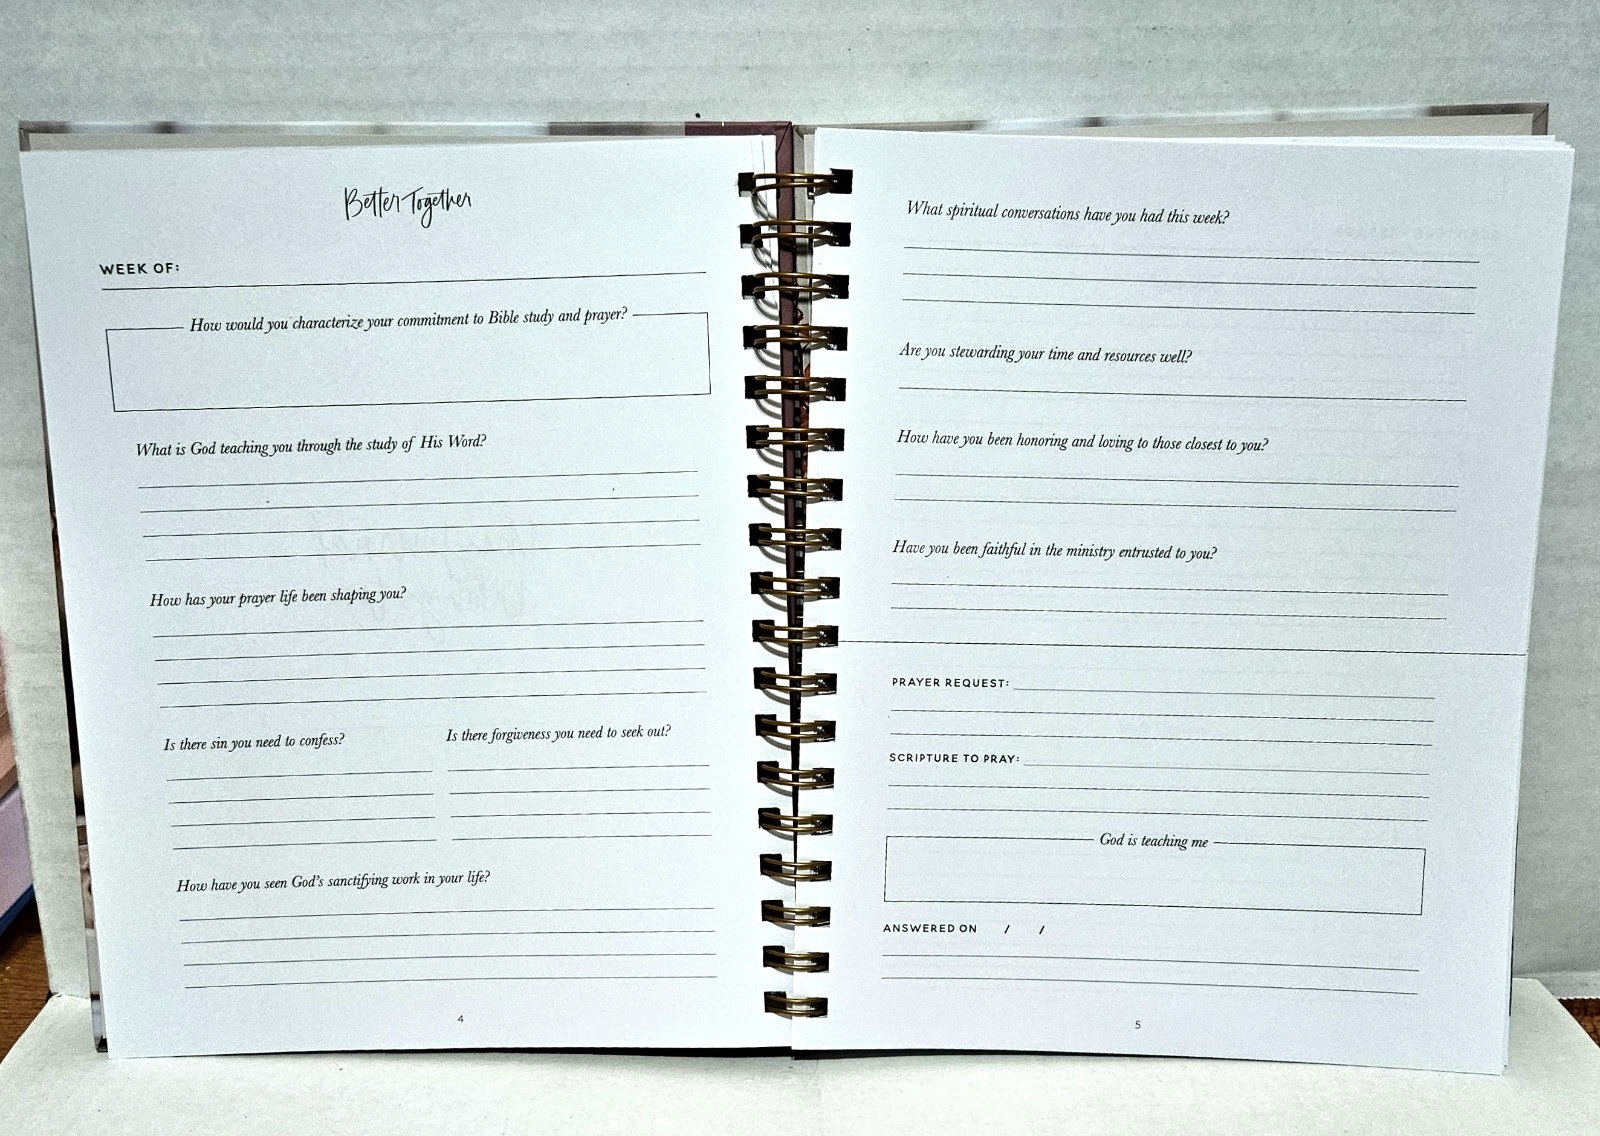 Better Together
WEEK OF:
How would you characterize your commitment to Bible study and prayer?
What is God teaching you through the study of His Word?
How has your prayer life been shaping you?
Is there sin you need to confess?
Is there forgiveness you need to seek out?
How have you seen God's sanctifying work in your life?
4
What spiritual conversations have you had this week?
Are you stewarding your time and resources well?
How have you been honoring and loving to those closest to you?
Have you been faithful in the ministry entrusted to you?
PRAYER REQUEST:
SCRIPTURE TO PRAY:
God is teaching me
ANSWERED ON / /
5